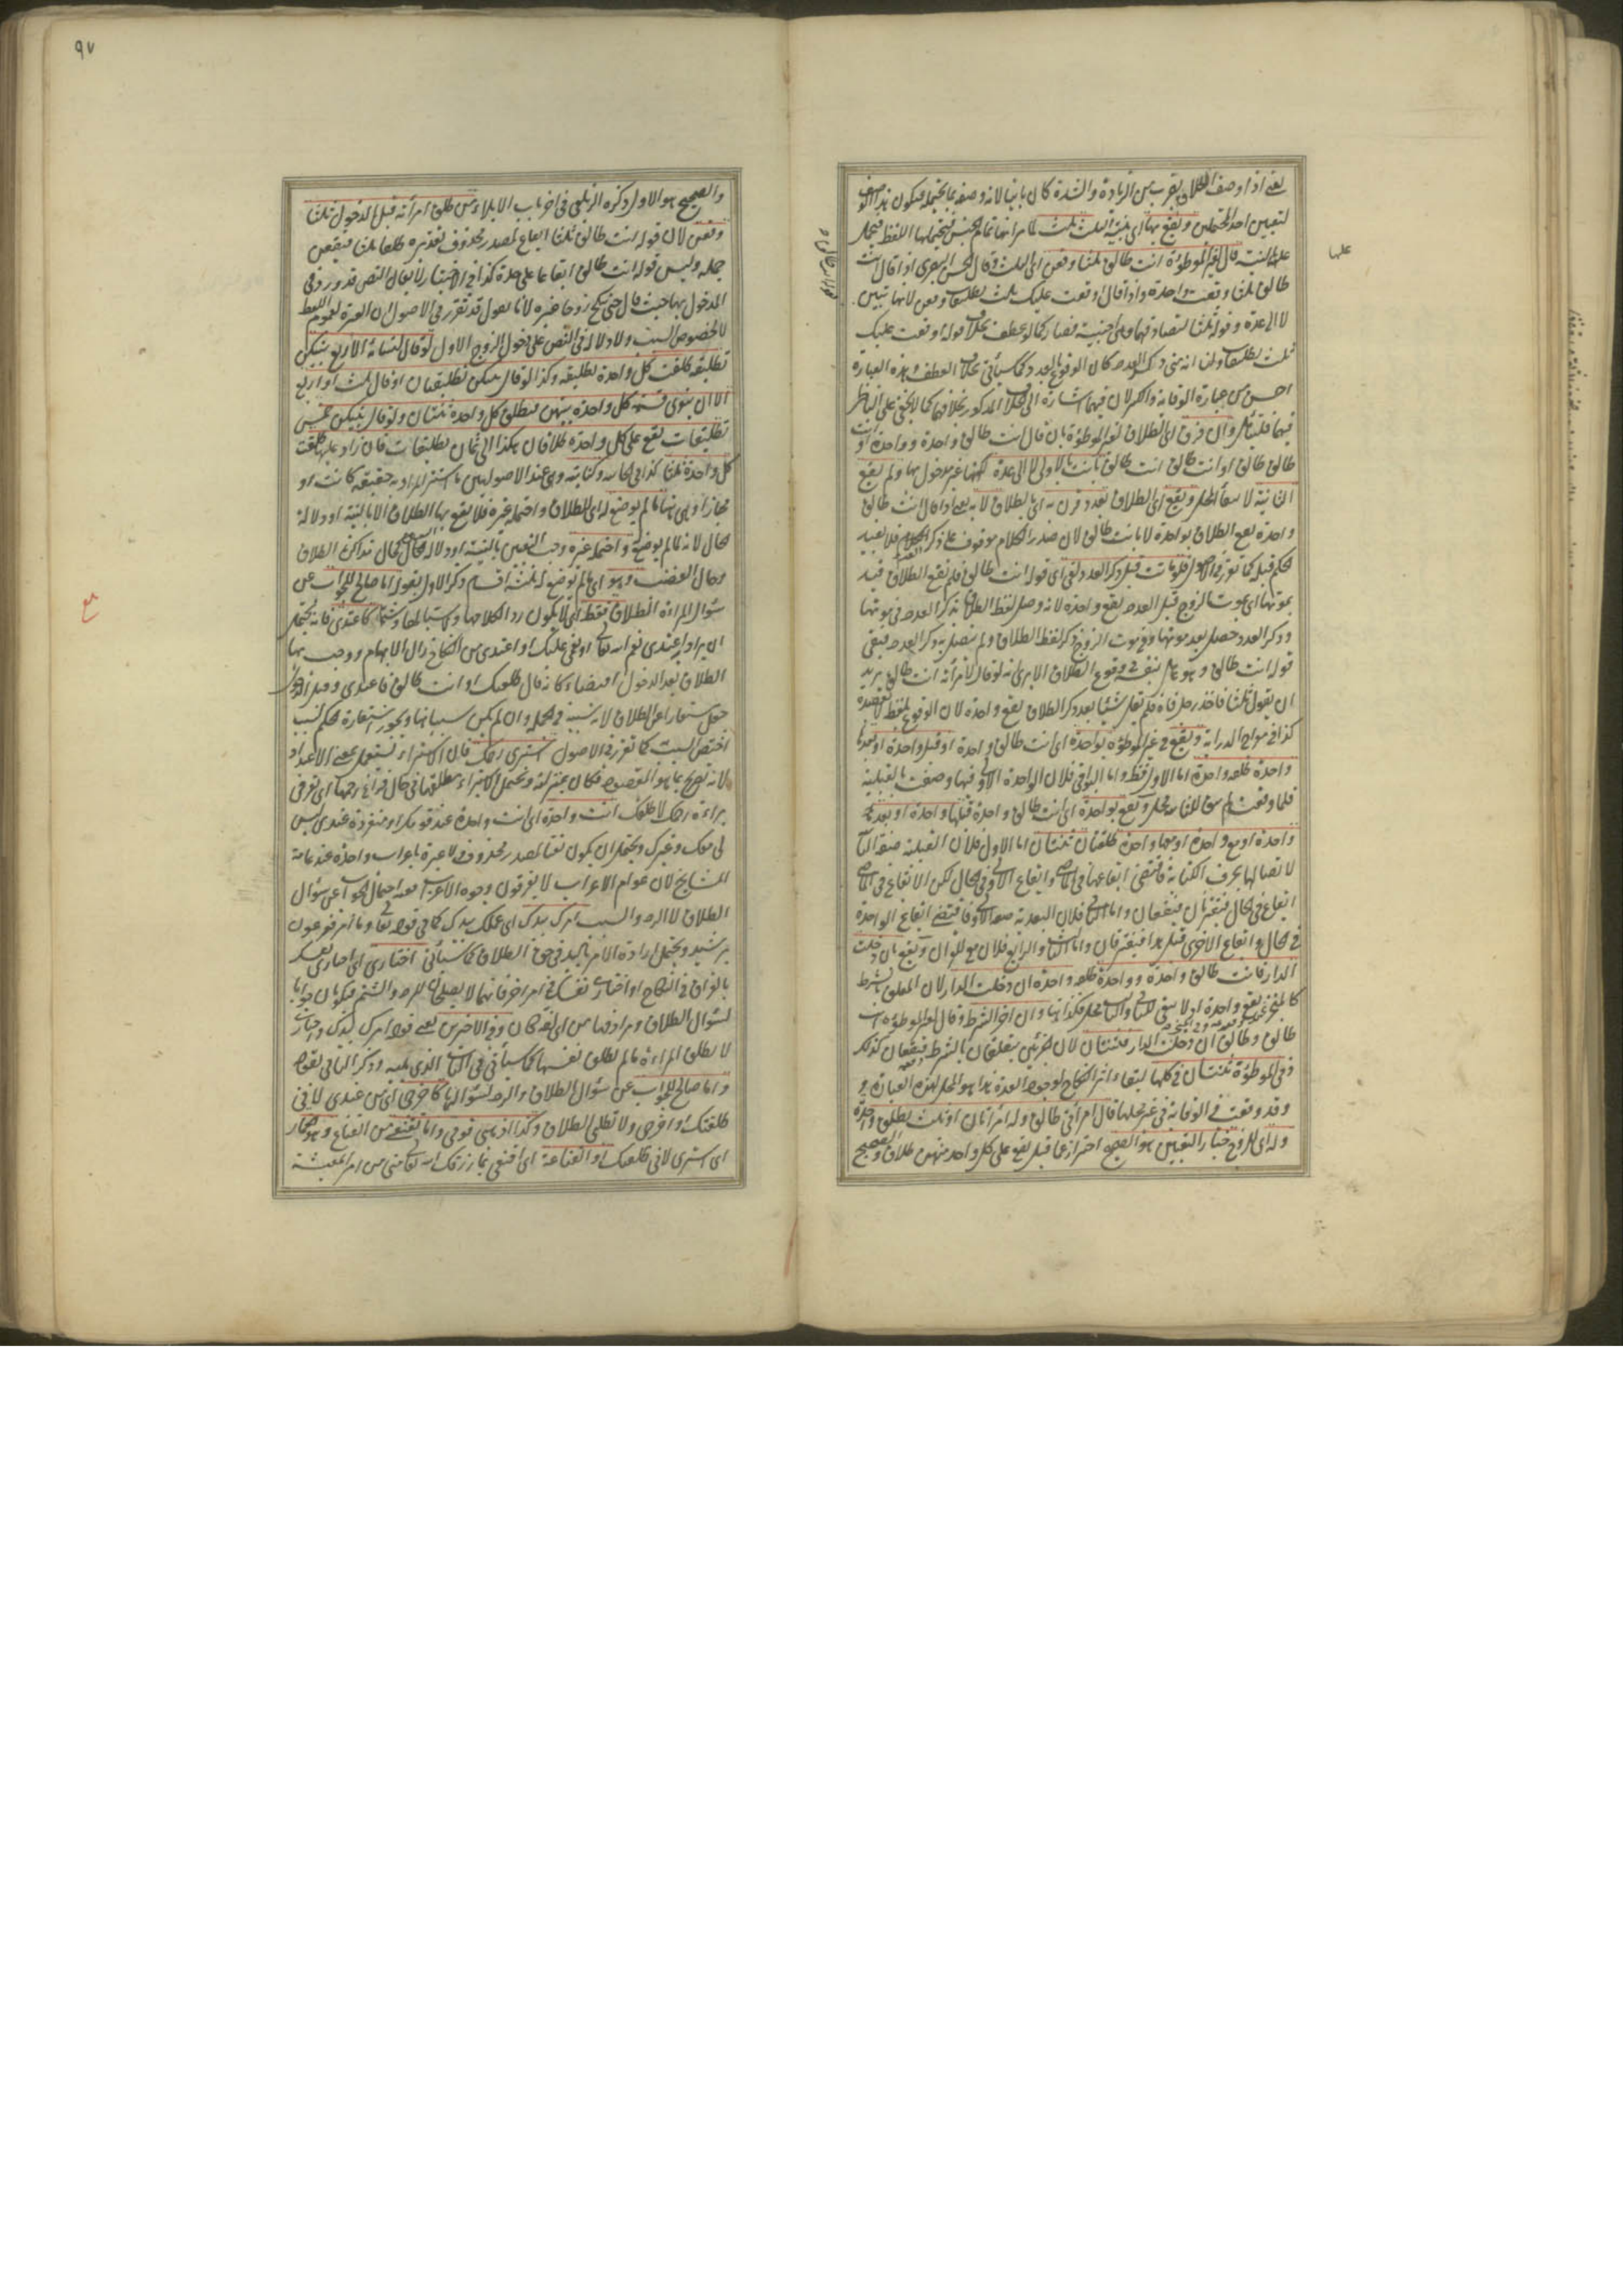 يعني اذا وصف الطلاق بضرب من الزيادة والشدة كان باينا لانه وصفه بما يحتمله فيكون هذا الوصف
لتعيين احد المحتملين ويقع بها اي بنية الثلث ثلث لما مر انها تمام الجنس فيحتملها اللفظ فيحمل
عليها
على النية قال لغير الموطوءة انت طالق ثلثا وقعن اي الثلث وقال الحسن البصري اذا قال انت
طالق ثلثا وقعت واحدة واذا قال اوقعت عليك ثلث تطليقات وقعن لانها تبين
لا الى عدة وقوله ثلثا لتصادفها وهي اجنبية فصار كما لو عطف بخلاف قوله اوقعت عليك
ثلث تطليقات ولنا انه متى ذكر العدد كان الوقوع بالعدد كما سيأتي بخلاف العطف هذه العبارة
احسن من عبارة الوقاية والكنز لان فيها اشارة الى الخلاف المذكور بخلافهما كما لا يخفى على الناظر
فيهما فليتأمل وان فرق اي الطلاق لغير الموطوءة بان قال انت طالق واحدة وواحدة او انت
طالق طالق او انت طالق انت طالق بانت بالاولى لا الى عدة لكونها غير مدخول بها ولم يقع
الثانية لانتفاء المحل ويقع اي الطلاق بعدد قرن به اي بالطلاق لا به يعني اذا قال انت طالق
واحدة يقع الطلاق بواحدة لا بانت طالق لان صدر الكلام موقوف على ذكر العدد فلا يفيد
الحكم قبله كما تقرر في الاصول فلو ماتت قبل ذكر العدد لغى اي قوله انت طالق فلم يقع الطلاق قيد
بموتها اي بموت الزوج قبل العدد يقع واحدة لانه وصل لفظ الطلاق بذكر العدد في موتها
وذكر العدد حصل بعد موتها وفي موت الزوج ذكر لفظ الطلاق ولم يتصل به ذكر العدد فيبقى
قوله انت طالق وهو عامل بنفسه في وقوع الطلاق الا يرى انه لو قال لامرأته انت طالق يريد
ان يقول ثلثا فاخذ رجل فاه فلم يقل شيئا بعد ذكر الطلاق يقع واحدة لان الوقوع بلفظه لا بقصده
كذا في معراج الدراية ويقع في غير الموطوءة بواحدة اي انت طالق واحدة او قبل واحدة او بعدها
واحدة طلقة واحدة اما الاول فظ واما البواقي فلان الواحدة الاولى فيها وصفت بالقبلية
فلما وقعت لم يبق للثانية محل ويقع بواحدة اي انت طالق واحدة قبلها واحدة او بعد
واحدة او مع واحدة او معها واحدة طلقتان ثنتان اما الاول فلان القبلية صفة الثانية
لاتصالها بحرف الكناية فاقتضى ايقاعها في الماضي وايقاع الاولى في الحال لكن الايقاع في الماضي
ايقاع في الحال فيقترنان فيقعان واما الثاني فلان البعدية صفة الاولى فاقتضى ايقاع الواحدة
في الحال وايقاع الاخرى قبل هذا فيقترقان واما الثالث والرابع فلان مع للقران ويقع بان دخلت
الدار فانت طالق واحدة وواحدة طلقة واحدة ان دخلت الدار لان المعلق بالشرط
كالمنجز عنده يقع واحدة اذ لا يبقى للثانية محل فكذا هنا وان اخر الشرط وقال لغير الموطوءة انت
طالق وطالق ان دخلت الدار فثنتان لان الجزئين يتعلقان بالشرط فيقعان كذلك
وفي الموطوءة ثنتان في كلها لبقاء اثر النكاح لوجود العدة هذا هو المحل لهذه العبارة
وقد وقعت في الوقاية في غير محلها قال امرأتي طالق وله امرأتان او ثلث تطلق واحدة
وله اي للزوج خيار التعيين هو الصحيح احتراز عما قيل يقع على كل واحد منهن طلاق والصحيح
٩٧
والصحيح هو الاول ذكره الزيلعي في اخر باب الايلاء من طلق امرأته قبل الدخول ثلثا
وقعن لان قوله انت طالق ثلثا ايقاع لمصدر محذوف تقديره طلاقا ثلثا فيقعن
جملة وليس قوله انت طالق ايقاعا على حدة كذا في الاختيار لا يقال النص قد ورد في
المدخول بها حيث قال حتى تنكح زوجا غيره لانا نقول قد تقرر في الاصول ان العبرة لعموم اللفظ
لا لخصوص السبب ولا دلالة في النص على دخول الزوج الاول لو قال لنسائه الاربع بينكن
تطليقة طلقت كل واحدة تطليقة وكذا لو قال بينكن تطليقتان او قال ثلث او اربع
الا ان ينوي قسمة كل واحدة بينهن فتطلق كل واحدة ثنتان ولو قال بينكن خمس
تطليقات يقع على كل واحدة طلاقان هكذا الى ثمان تطليقات فان زاد عليها طلقت
كل واحدة ثلثا كذا في الخانية وكناية وهي عند الاصوليين ما استتر المراد به حقيقة كانت او
مجازا وهي هنا ما لم يوضع له اي للطلاق واحتمله وغيره فلا يقع بها الطلاق الا بالنية او دلالة
الحال لانه لما لم يوضع له واحتمله وغيره وجب التعيين بالنية او دلالة الحال كحال مذاكرة الطلاق
وحال الغضب وهو اي ما لم يوضع له ثلثة اقسام ذكر الاول بقوله اما صالح للجواب عن
سؤال المراة الطلاق فقط اي لا يكون ردا لكلامها ولا سبا لها وشتما كاعتدي فانه يحتمل
ان يراد اعتدي نعم الله تعالى او نعمي عليك او اعتدي من النكاح زال الابهام ووجب بها
الطلاق بعد الدخول اقتضاء كانه قال طلقتك او انت طالق فاعتدي وقبل الدخول
جعل مستعارا عن الطلاق لانه سببه في الجملة وان لم يكن سببا هنا ويجوز استعارة الحكم لسبب
اختص السبب كما تقرر في الاصول استبري رحمك فان الاستبراء يستعمل بمعنى الاعتداد
لانه تصريح بما هو المقصود فكان بمنزلته ويحتمل الاستبراء ليطلقها في حال فراغ رحمها اي تعرفي
براءة رحمك لاطلقك انت واحدة اي انت واحدة عند قومك او منفردة عندي ليس
لي معك وغيرك ويحتمل ان يكون نعتا لمصدر محذوف ولا عبرة باعراب واحدة عند عامة
المشايخ لان عوام الاعراب لا يفرقون وجوه الاعراب احتمال الجواب عن سؤال
الطلاق لا الرد والسب امرك بيدك اي عملك بيدك كما في قوله تعالى وما امر فرعون
برشيد ويحتمل ارادة الامر باليد في حق الطلاق كما سيأتي اختاري اي اختاري نفسك
بالفراق في النكاح او اختاري نفسك في امر اخر فانهما لا يصلحان للرد والشتم فيكونان جوابا
لسؤال الطلاق ومرادفها من اي لغة كان وفي الاخيرين يعني قوله امرك بيدك واختاري
لا تطلق المراءة ما لم تطلق نفسها كما سيأتي في الباب الذي يليه وذكر الثاني بقوله
واما صالح للجواب عن سؤال الطلاق والرد لسؤالها كاخرجي اي من عندي لاني
طلقتك او اخرجي ولا تطلبي الطلاق وكذا اذهبي قومي واما تقنعي من القناع وهو الخمار
اي استتري لاني طلقتك او القناعة اي اقنعي بما رزقك الله تعالى مني من امر المعيشة